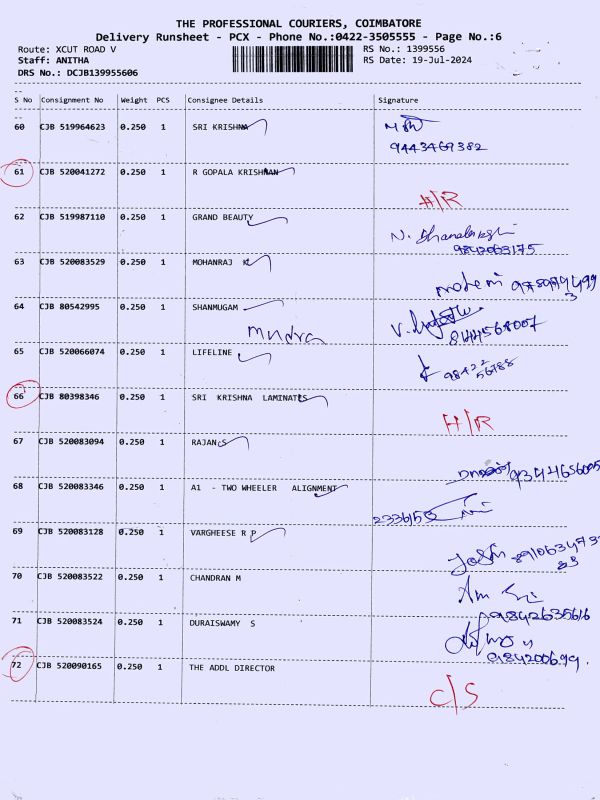 THE PROFESSIONAL COURIERS, COIMBATORE
Delivery Runsheet - PCX - Phone No.:0422-3505555 - Page No.:6
Route: XCUT ROAD V
RS No.: 1399556
Staff: ANITHA
RS Date: 19-Jul-2024
DRS No.: DCJB139955606
S No Consignment No Weight PCS Consignee Details Signature
60 CJB 519964623 0.250 1 SRI KRISHNA
9443469382
61 CJB 520041272 0.250 1 R GOPALA KRISHNAN
H/R
62 CJB 519987110 0.250 1 GRAND BEAUTY
N.
9842063175
63 CJB 520083529 0.250 1 MOHANRAJ K
64 CJB 80542995 0.250 1 SHANMUGAM
Mundra
65 CJB 520066074 0.250 1 LIFELINE
66 CJB 80398346 0.250 1 SRI KRISHNA LAMINATES
H/R
67 CJB 520083094 0.250 1 RAJAN S
68 CJB 520083346 0.250 1 A1 - TWO WHEELER ALIGNMENT
69 CJB 520083128 0.250 1 VARGHEESE R P
70 CJB 520083522 0.250 1 CHANDRAN M
71 CJB 520083524 0.250 1 DURAISWAMY S
9842635616
72 CJB 520090165 0.250 1 THE ADDL DIRECTOR
C/S